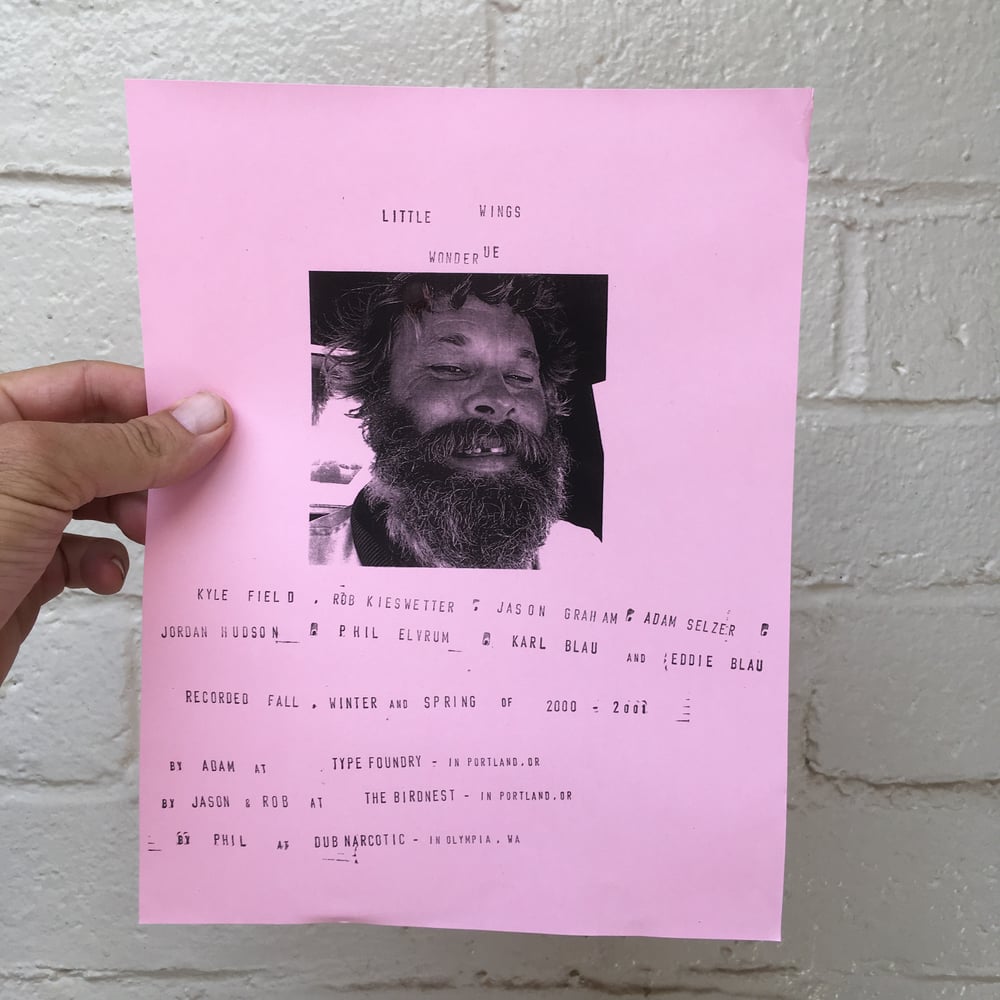 LITTLE WINGS
WONDERUE
KYLE FIELD , ROB KIESWETTER & JASON GRAHAM & ADAM SELZER &
JORDAN HUDSON & PHIL ELVRUM & KARL BLAU AND EDDIE BLAU
RECORDED FALL , WINTER AND SPRING OF 2000 - 2001
BY ADAM AT TYPE FOUNDRY - IN PORTLAND, OR
BY JASON & ROB AT THE BIRDNEST - IN PORTLAND, OR
BY PHIL AT DUB NARCOTIC - IN OLYMPIA, WA